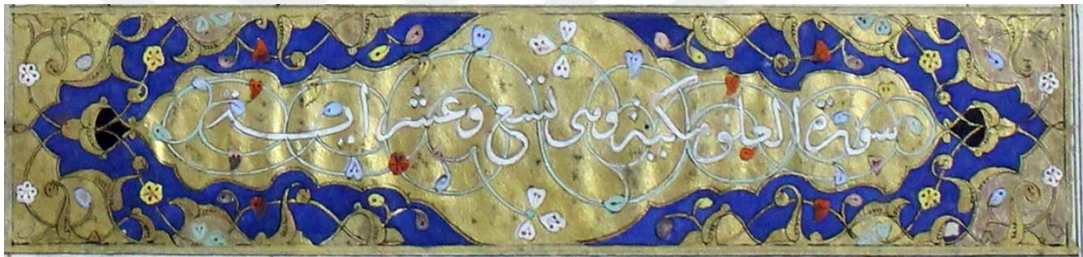 سورة العلق مكية وهي تسع وعشر اية